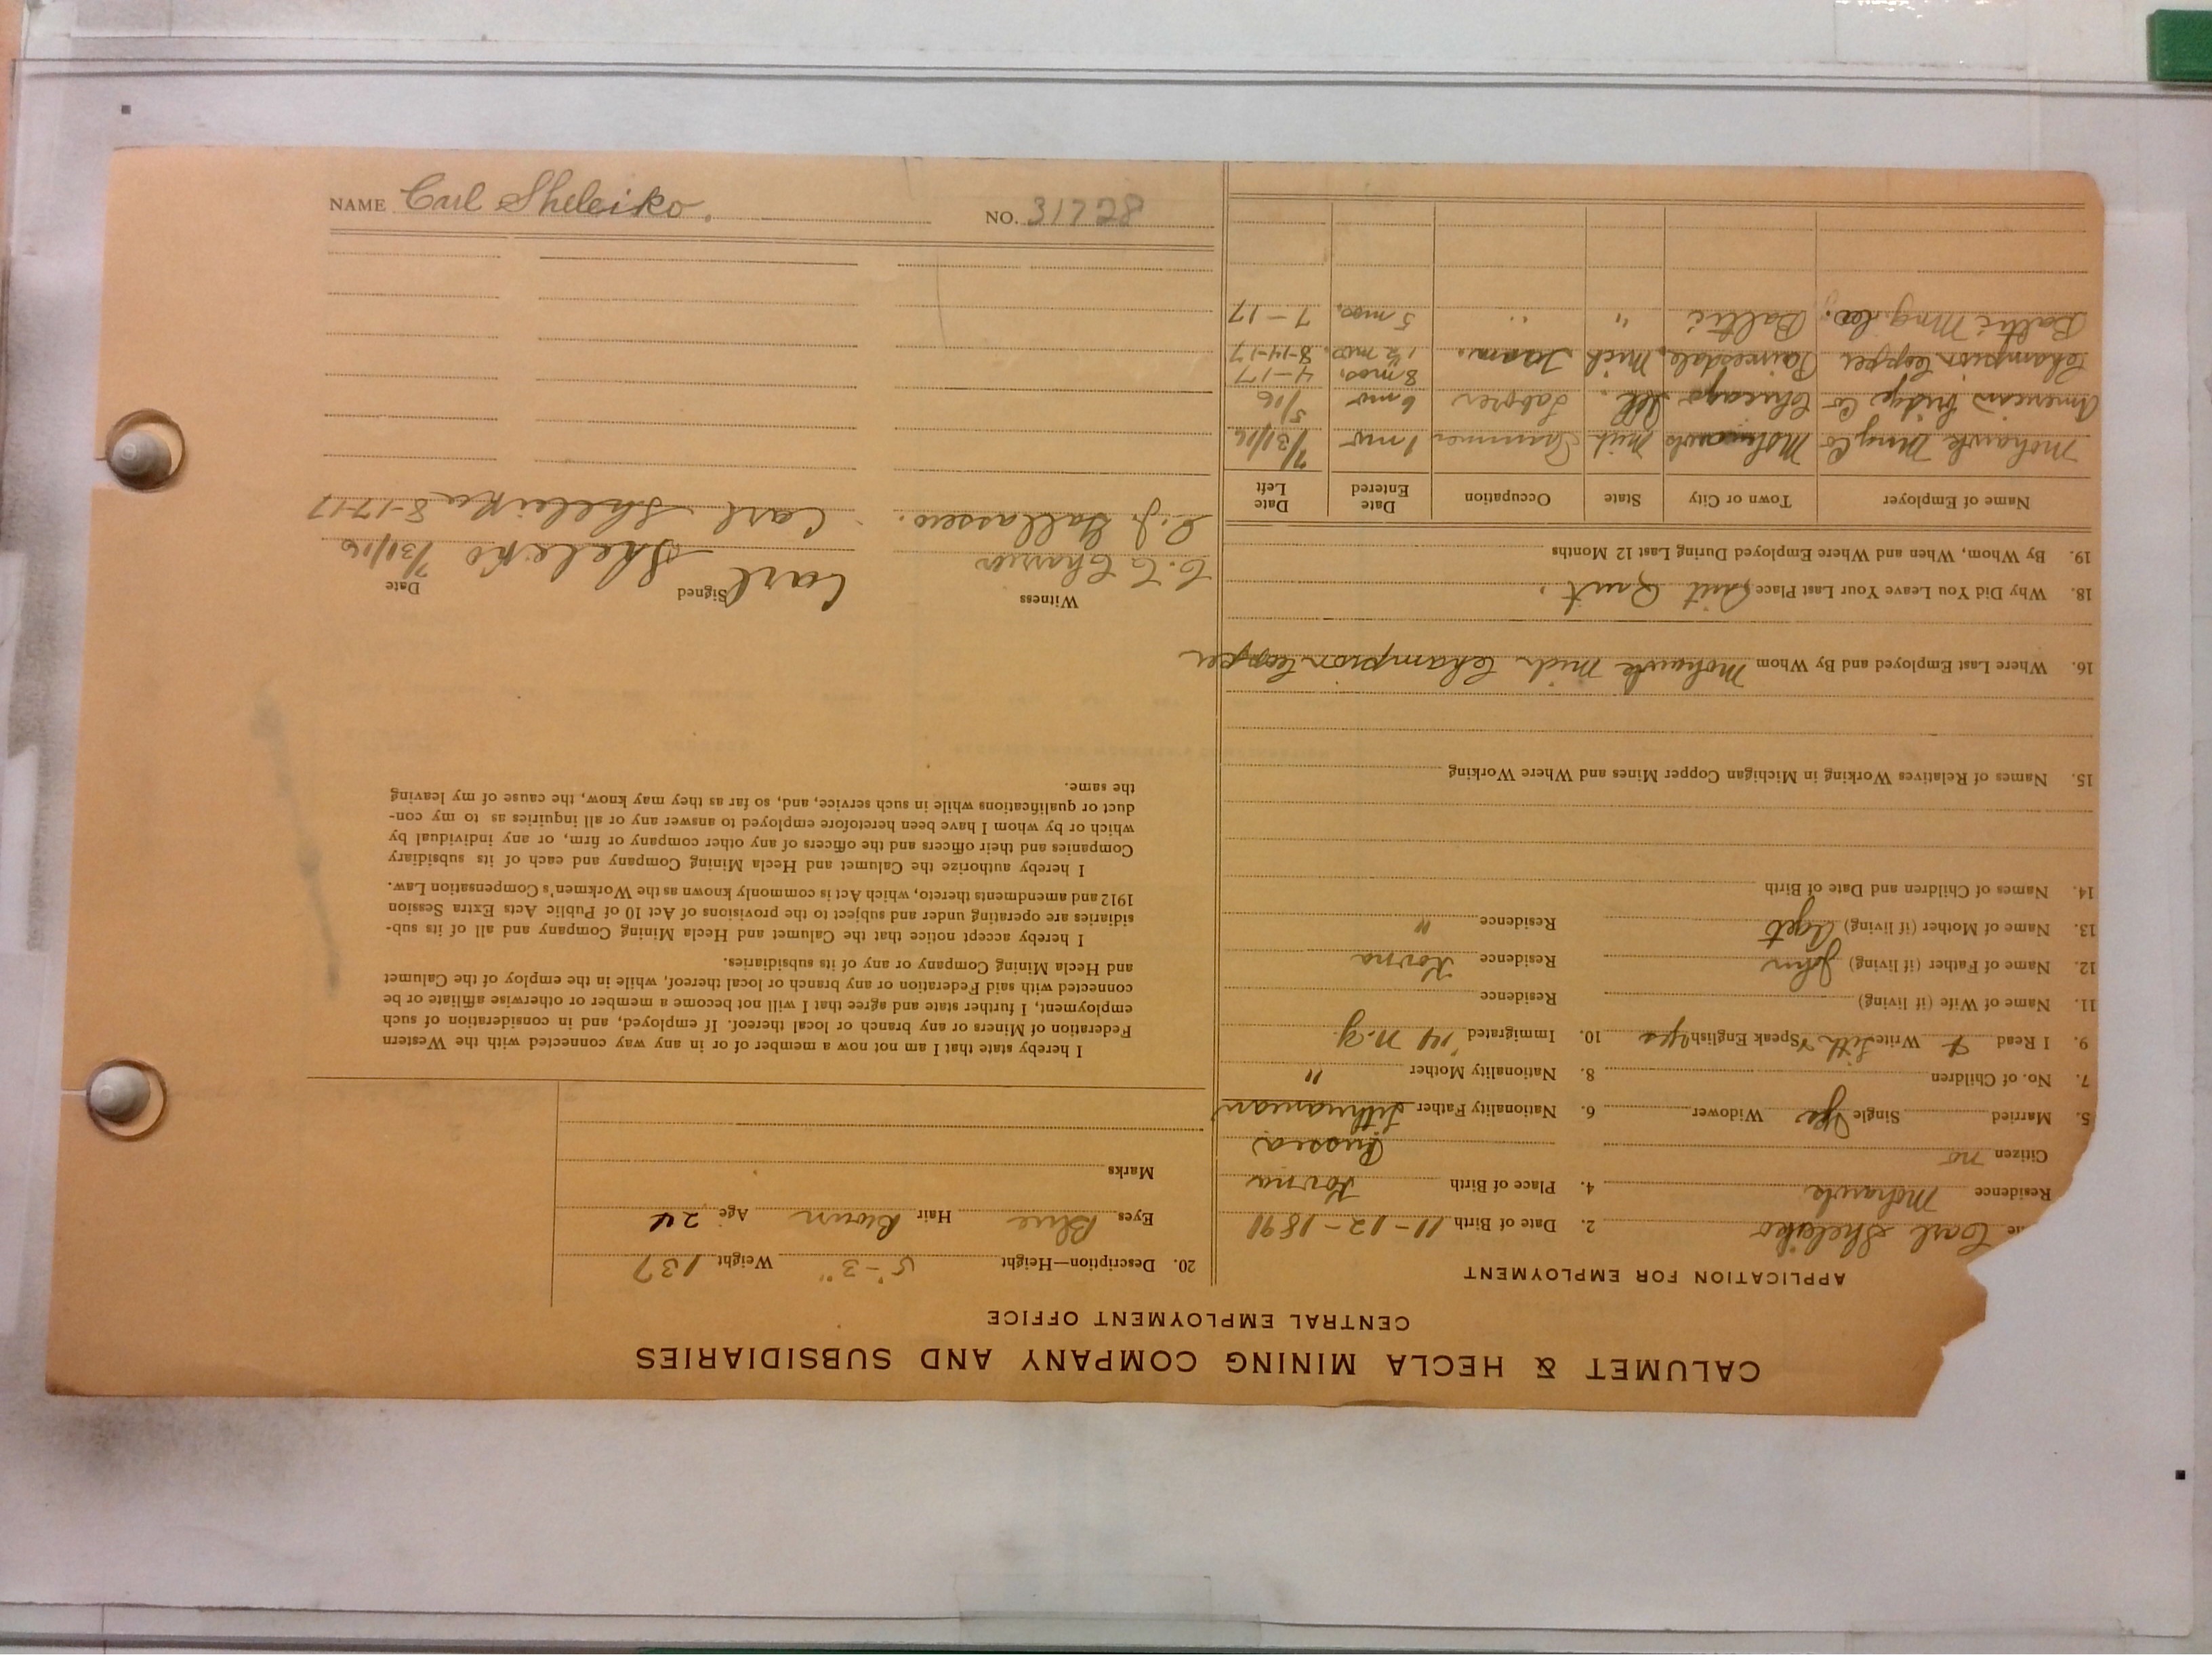 CALUMET & HECLA MINING COMPANY AND SUBSIDIARIES
CENTRAL EMPLOYMENT OFFICE
APPLICATION FOR EMPLOYMENT
Carl Sheleiko 2. Date of Birth 11-12-1891
Residence Mohawk 4. Place of Birth Kovna
Citizen no Russia
5. Married Single Yes Widower 6. Nationality Father Lithuanian
7. No. of Children 8. Nationality Mother "
9. I Read Write Lith Speak English yes 10. Immigrated '14 N.Y
11. Name of Wife (if living) Residence
12. Name of Father (if living) John Residence Kovna
13. Name of Mother (if living) Aget Residence "
14. Names of Children and Date of Birth
15. Names of Relatives Working in Michigan Copper Mines and Where Working
16. Where Last Employed and By Whom Mohawk Mich Champion Copper
18. Why Did You Leave Your Last Place Quit Quit.
19. By Whom, When and Where Employed During Last 12 Months
Name of Employer Town or City State Occupation Date Entered Date Left
Mohawk Mng Co Mohawk Mich Trammer 1 mo 7/31/16
American Bridge Co Chicago Ill. Laborer 6 mo 5/16
8 mos. 4-17
Champion Copper Painesdale, Mich Tram. 1½ mos. 8-14-17
Baltic Mng. Co. Baltic " " 5 mos. 7-17
20. Description—Height 5'-3" Weight 137
Eyes Blue Hair Brown Age 24
Marks
I hereby state that I am not now a member of or in any way connected with the Western
Federation of Miners or any branch or local thereof. If employed, and in consideration of such
employment, I further state and agree that I will not become a member or otherwise affiliate or be
connected with said Federation or any branch or local thereof, while in the employ of the Calumet
and Hecla Mining Company or any of its subsidiaries.
I hereby accept notice that the Calumet and Hecla Mining Company and all of its sub-
sidiaries are operating under and subject to the provisions of Act 10 of Public Acts Extra Session
1912 and amendments thereto, which Act is commonly known as the Workmen's Compensation Law.
I hereby authorize the Calumet and Hecla Mining Company and each of its subsidiary
Companies and their officers and the officers of any other company or firm, or any individual by
which or by whom I have been heretofore employed to answer any or all inquiries as to my con-
duct or qualifications while in such service, and, so far as they may know, the cause of my leaving
the same.
Witness Signed Date
Carl Sheleiko 7/31/16
Carl Sheleiko 8-17-17
NAME Carl Sheleiko. NO. 31728